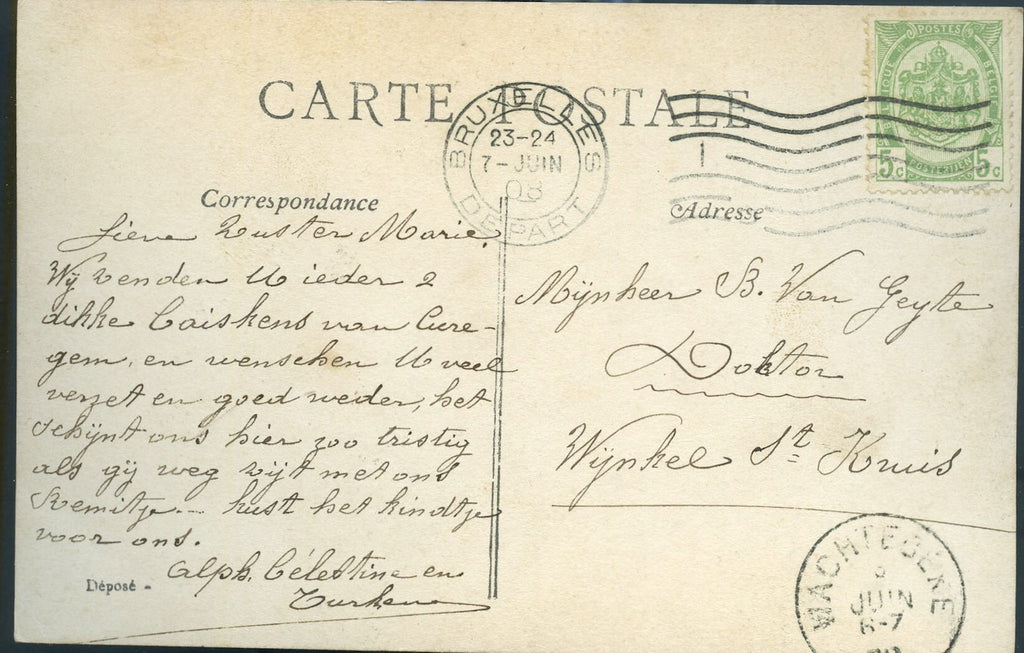 CARTE POSTALE
BRUXELLES
23-24
7-JUIN
08
DEPART
POSTES
5c 5c
Correspondance
Lieve Zuster Marie,
Wij zenden U ieder 2
dikke baiskens van Cure-
gem, en wenschen U veel
verzet en goed weder, het
schijnt ons hier zoo tristig
als gij weg zijt met ons
Remitje -- kust het kindtje
voor ons.
Alph. Célestine en
Déposé -
Adresse
Mijnheer B. Van Geyte
Doktor
Wijnkel St Kruis
WACHTEBEKE
JUIN
6-7